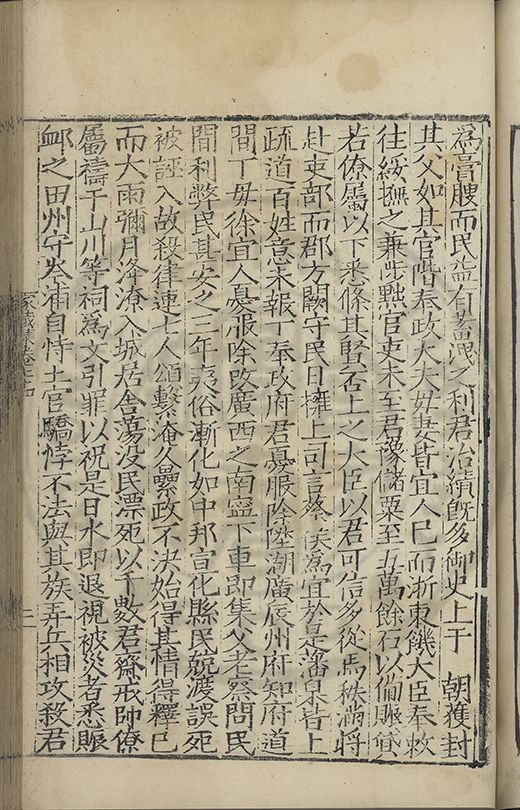 為膏腴而民益有蓄洩之利君治績既多御史上于　朝獲封
其父如其官階奉政大夫毋妻皆宜人已而浙東饑大臣奉敕
往綏撫之兼黜官吏未至君豫儲粟至五萬餘石以俻賑貸
若僚屬以下悉條其賢否上之大臣以君可信多從焉秩滿將
赴吏部而郡方闕守民日擁上司言蔡侯為宜於是藩臬皆上
疏道百姓意未報丁奉政府君憂服除陞湖廣辰州府知府道
間丁毋徐宜人憂服除改廣西之南寧下車即集父老察問民
間利弊民甚安之三年夷俗漸化如中邦宣化縣民競渡誤死
被誣入故殺律連七人頌繫淹久纍政不決始得其情得釋已
而大雨彌月洚潦入城居舎蕩没民漂死以千數君齋戒帥僚
屬禱于山川等祠為文引罪以祝是日水即退視被災者悉賑
卹之田州守岑溥自恃土官驕悖不法與其族弄兵相攻殺君